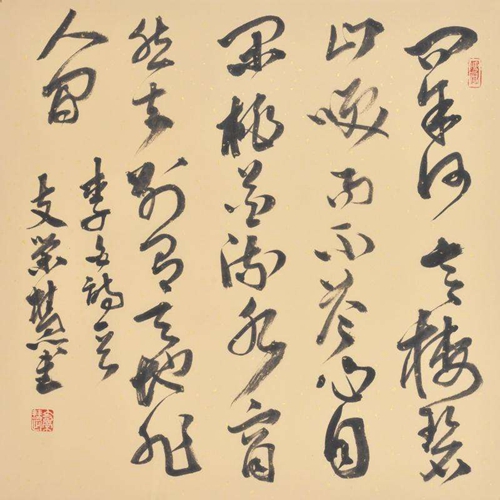 問余何意棲碧
山笑而不答心自
閑桃花流水窅
然去別有天地非
人間
李白詩一首